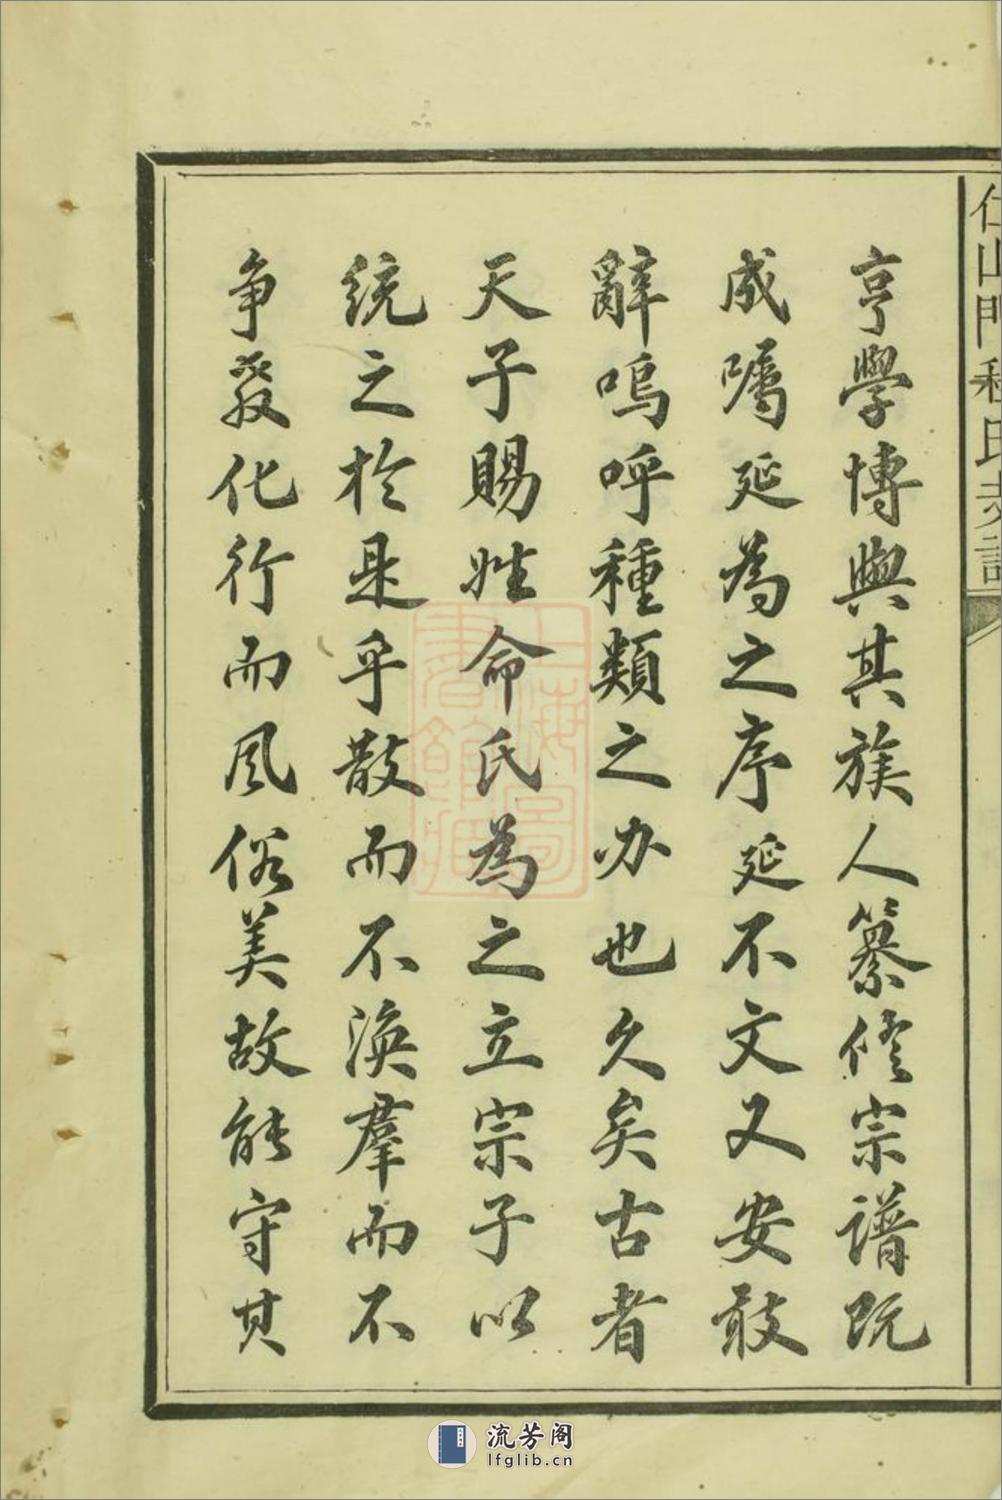 亨學博與其族人纂修宗譜既
成嘱延為之序延不文又安敢
辭嗚呼種類之办也久矣古者
天子賜姓命氏為之立宗子以
統之於是乎散而不渙羣而不
争教化行而風俗美故能守其
仁山門程氏支譜
上海圖書館藏
流芳阁
lfglib.cn